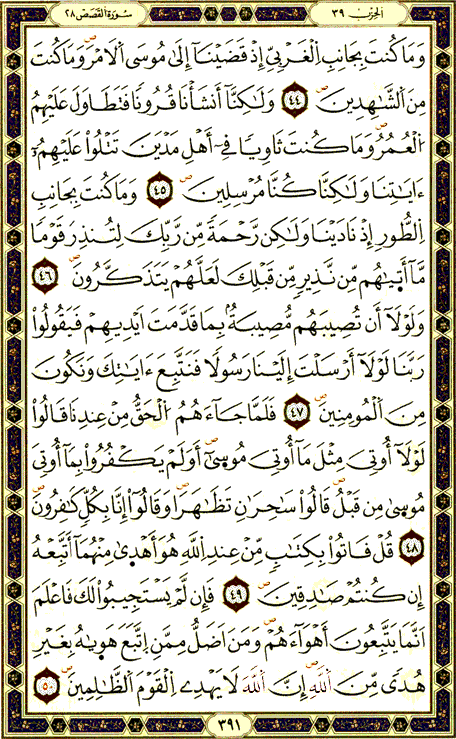 سورة القصص ٢٨
الحزب ٣٩
وَمَا كُنتَ بِجَانِبِ اِ۬لْغَرْبِيِّ إِذْ قَضَيْنَآ إِلَىٰ مُوسَى اَ۬لَامْرَ وَمَا كُنتَ
مِنَ اَ۬لشَّٰهِدِينَۖ ٤٤ وَلَٰكِنَّآ أَنشَأْنَا قُرُوناٗ فَتَطَاوَلَ عَلَيْهِمُ
اُ۬لْعُمُرُۖ وَمَا كُنتَ ثَاوِياٗ فِےٓ أَهْلِ مَدْيَنَ تَتْلُواْ عَلَيْهِمُۥٓ
ءَايَٰتِنَا وَلَٰكِنَّا كُنَّا مُرْسِلِينَۖ ٤٥ وَمَا كُنتَ بِجَانِبِ
اِ۬لطُّورِ إِذْ نَادَيْنَا وَلَٰكِن رَّحْمَةٗ مِّن رَّبِّكَ لِتُنذِرَ قَوْماٗ
مَّآ أَتَيٰهُم مِّن نَّذِيرٖ مِّن قَبْلِكَ لَعَلَّهُمْ يَتَذَكَّرُونَۖ ٤٦
وَلَوْلَآ أَن تُصِيبَهُم مُّصِيبَةُۢ بِمَا قَدَّمَتَ اَيْدِيهِمْ فَيَقُولُواْ
رَبَّنَا لَوْلَآ أَرْسَلْتَ إِلَيْنَا رَسُولاٗ فَنَتَّبِعَ ءَايَٰتِكَ وَنَكُونَ
مِنَ اَ۬لْمُومِنِينَۖ ٤٧ فَلَمَّا جَآءَهُمُ اُ۬لْحَقُّ مِنْ عِندِنَا قَالُواْ
لَوْلَآ أُوتِيَ مِثْلَ مَآ أُوتِيَ مُوسَىٰٓۖ أَوَلَمْ يَكْفُرُواْ بِمَآ أُوتِيَ
مُوسَىٰ مِن قَبْلُۖ قَالُواْ سَٰحِرَٰنِ تَظَٰهَرَاۖ وَقَالُوٓاْ إِنَّا بِكُلّٖ كَٰفِرُونَۖ
٤٨ قُلْ فَاتُواْ بِكِتَٰبٖ مِّنْ عِندِ اِ۬للَّهِ هُوَ أَهْدَىٰ مِنْهُمَآ أَتَّبِعْهُ
إِن كُنتُمْ صَٰدِقِينَۖ ٤٩ فَإِن لَّمْ يَسْتَجِيبُواْ لَكَ فَاعْلَمَ
اَنَّمَا يَتَّبِعُونَ أَهْوَآءَهُمْۖ وَمَنَ اَضَلُّ مِمَّنِ اِ۪تَّبَعَ هَوَيٰهُ بِغَيْرِ
هُدىٗ مِّنَ اَ۬للَّهِۖ إِنَّ اَ۬للَّهَ لَا يَهْدِے اِ۬لْقَوْمَ اَ۬لظَّٰلِمِينَۖ ٥٠
٣٩١